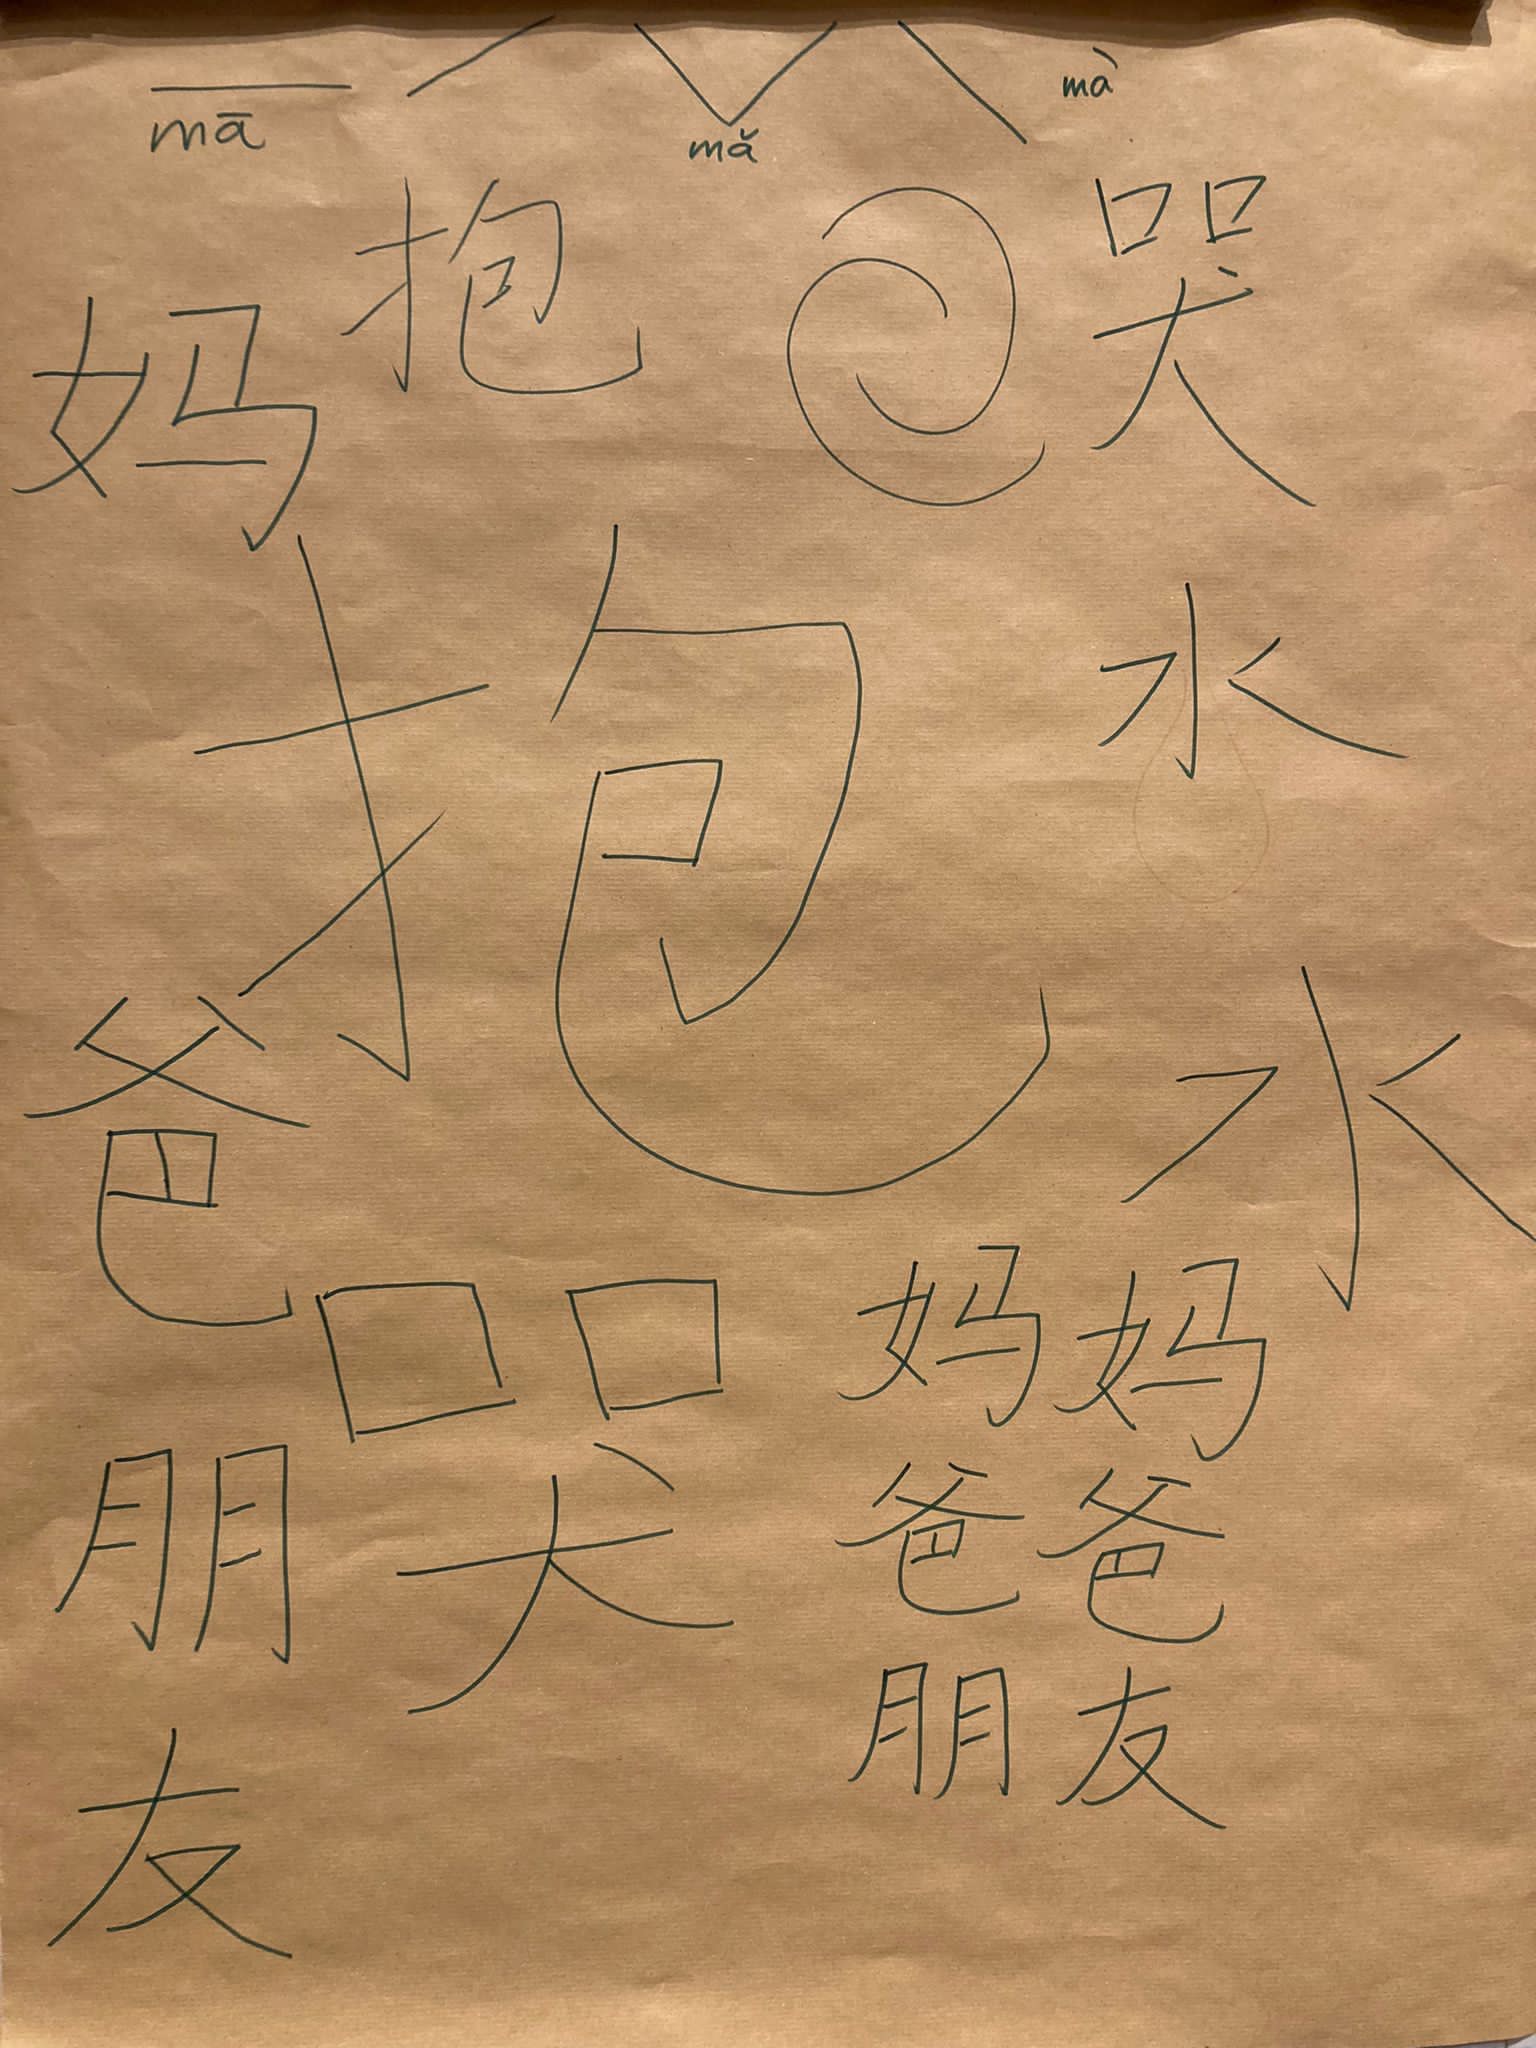 mā mǎ mà
妈 抱 哭
抱 水
爸 水
哭 妈妈
朋 爸爸
友 朋友